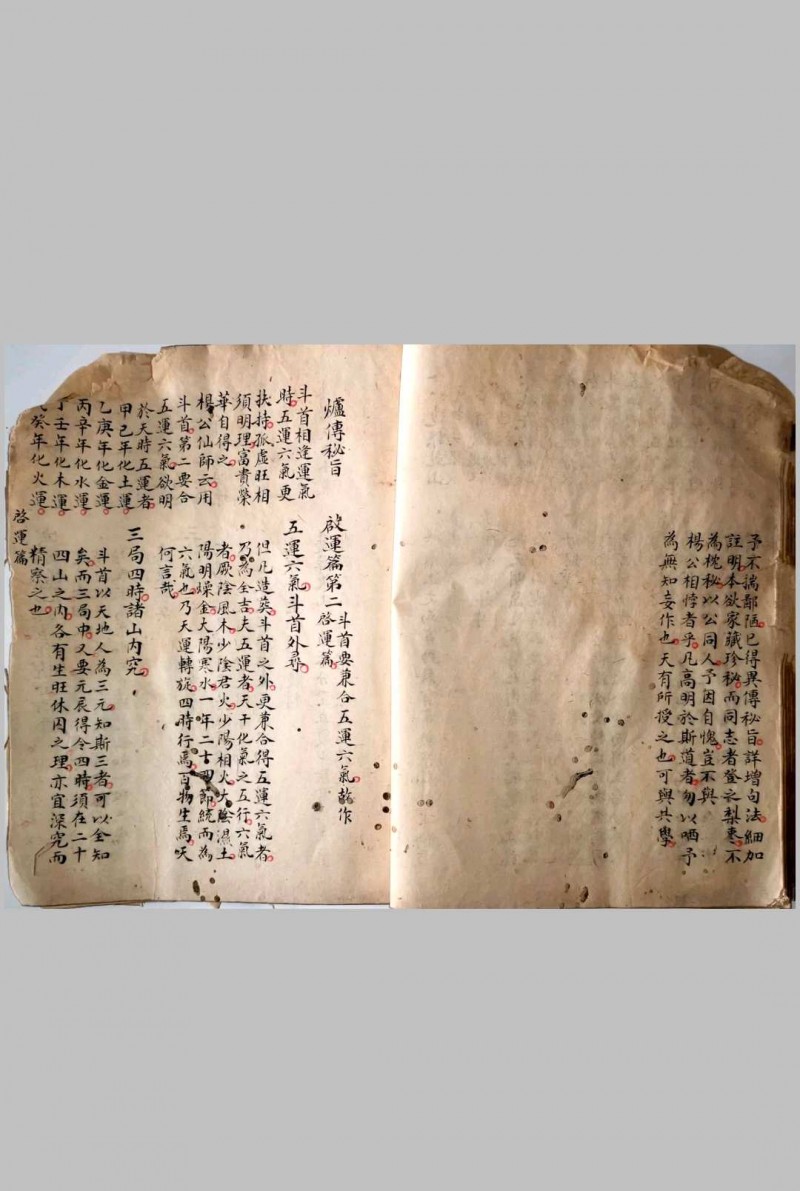 予不揣鄙陋已得異傳秘旨詳增句法細加
註明本欲家藏珍秘而同志者登之梨棗不
為枕秘以公同人予因自愧豈不與
楊公相悖者乎凡高明於斯道者勿以哂予
為無知妄作也天有所授之也可與共學
爐傳秘旨
斗首相逢運氣
時五運六氣更
扶持孤虛旺相
須明理富貴榮
華自得之
楊公仙師云用
斗首第二要合
五運六氣欲明
於天時五運者
甲己年化土運
乙庚年化金運
丙辛年化水運
丁壬年化木運
癸年化火運
啟運篇第二
斗首要兼合五運六氣 作
啓運篇
五運六氣斗首外尋
但凡造葬斗首之外更兼合得五運六氣者
乃為全吉夫五運者天干化氣之五行六氣
者厥陰風木少陰君火少陽相火太陰濕土
陽明燥金太陽寒水一年二十四節統而為
六氣也乃天運轉旋四時行焉百物生焉天
何言哉
三局四時諸山內究
斗首以天地人為三元知斯三者可以全知
矣而三局中又要元辰得令四時須在二十
四山之內各有生旺休囚之理亦宜深究而
精察之也
啓運篇